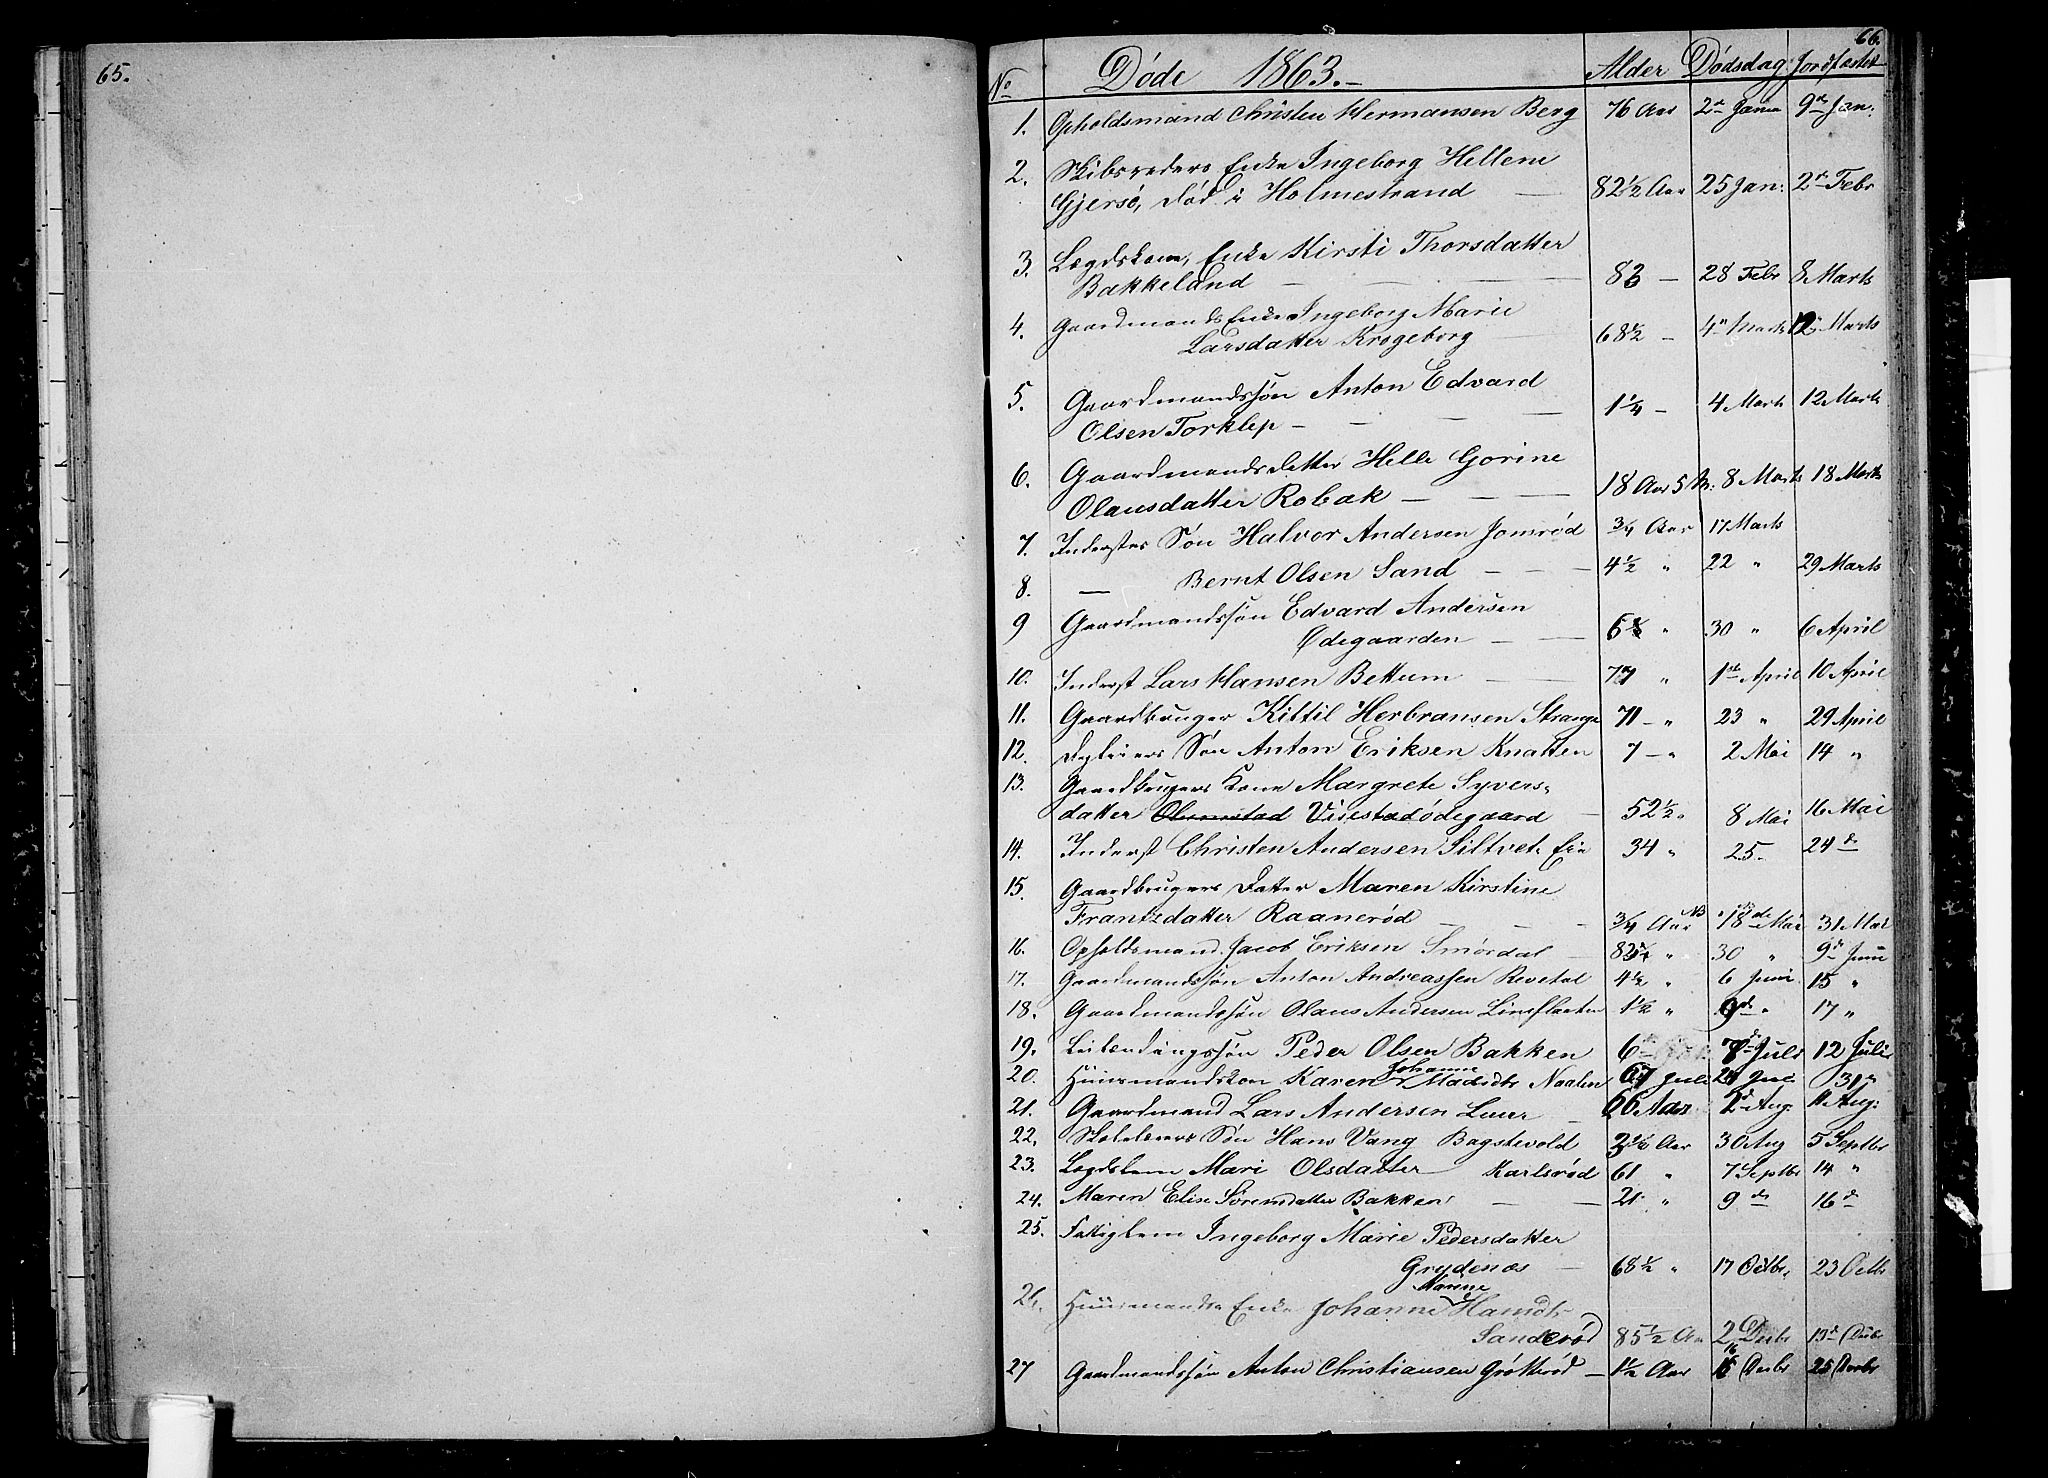 65.
66.
No Døde 1863.- Alder Dødsdag Jordfæstet
1. Opholdsmand Christen Hermansen Berg 76 Aar 2den Janu 9de Jan:
2. Skibsreders Enke Ingeborg Hellene
Gjersø, død i Holmestrand — 82 1/2 Aar 25 Jan: 2den Febr
3. Lægdslem, Enke Kirsti Thorsdatter
Bakkeland — — — 83 — 28 Febr 8 Marts
4. Gaardmands Enke Ingeborg Marie
Larsdatter Krogeborg — 68 1/2 — 4de Marts 12 Marts
5. Gaardmandssøn Anton Edvard
Olsen Torklep — — — 1 1/4 — 4 Marts 12 Marts
6. Gaardmandsdatter Helle Gorine
Olausdatter Robæk — — — 18 Aar 5 M: 8 Marts 18 Marts
7. Inderstes Søn Halvor Andersen Jomrød 3/4 Aar 17 Marts
8. — Bernt Olsen Sand — — — 4 1/2 " 22 " 29 Marts
9 Gaardmandssøn Edvard Andersen
Ødegaarden — — " 30 " 6 April
10. Inderst Lars Hansen Bettum — 77 " 1ste April 10 April
11. Gaardbruger Kittil Herbransen Strange 71 — " 23 " 29 April
12. Søn Anton Eriksen Knatten 7 — " 2 Mai 14 "
13. Gaardbrugers Kone Margrete Syvers-
datter Olumstad Vivestadødegaard — 52 1/2 " 8 Mai 16 Mai
14. Inderst Christen Andersen Siltvet. Eie 34 " 25. 24 de
15. Gaardbrugers Datter Maren Kirstine
Frantzdatter Raanerød — — 3/4 Aar NB 18de Mai 31 Mai
16. Opholdsmand Jacob Eriksen Smørdal — " 30 " 9de Juni
17. Gaardmandssøn Anton Andreassen Revetal 4 1/2 " 6 Juni 15 "
18. Gaardmandssøn Olaus Andersen Linnflaaten 1 1/2 " 9de " 17 "
19. Leilendingssøn Peder Olsen Bakken 6 Juli 12 Juli
20. Huusmandskon Karen Johanne Madsdtr Naalen 67 24 Juli 31 "
21. Gaardmand Lars Andersen Luur — 66 Aar 2d Aug: 11 Aug:
22. Skolelærers Søn Hans Vang Bogstvold Aar 30 Aug 5 Septbr
23. Lægdslem Mari Olsdatter — Karlsrød 61 " 7 Septbr 14 "
24. Maren Elise Sørensdatter Bakken — — 21 " 9 de 16 de
25. Fattiglem Ingeborg Marie Pedersdatter
Grydenæs — 68 1/2 " 17 Octbr, 23 Octbr
26. Huusmands Enke Johanne Hansdtr
Sanderød 85 1/2 Aar 2 Decbr 13de Decbr
27 Gaardmandssøn Anton Christiansen Grøtterød — 1 1/2 Aar 16 Decbr 25 Decbr